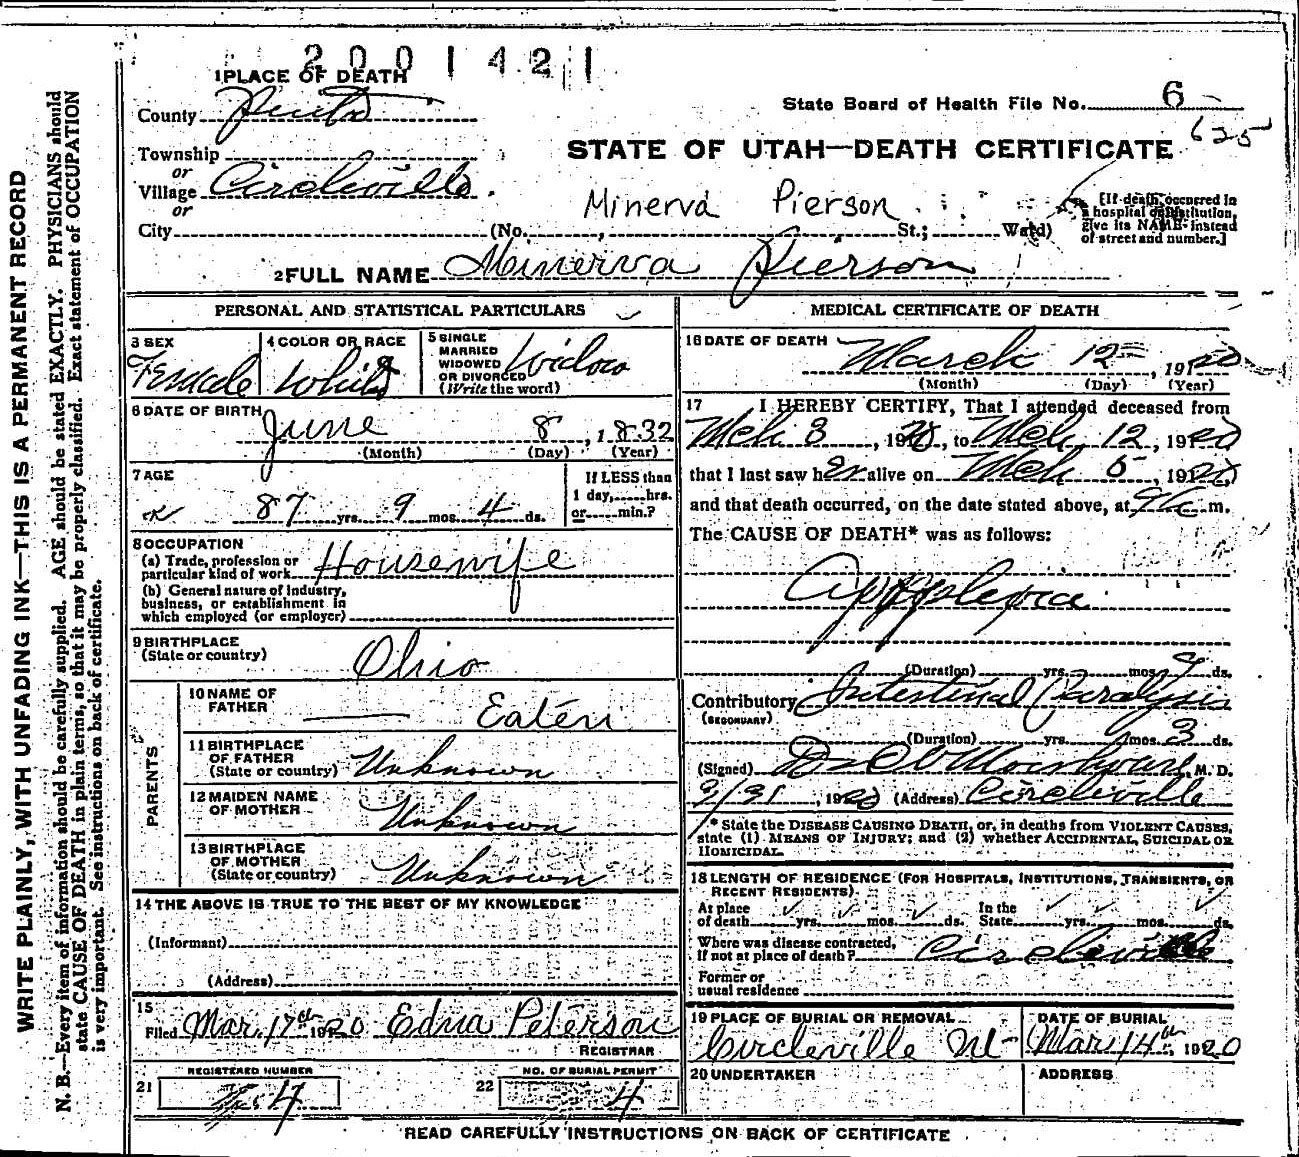 2001421
1 PLACE OF DEATH
County Piute
State Board of Health File No. 6
625
Township
or
Village Circleville
or
STATE OF UTAH—DEATH CERTIFICATE
Minerva Pierson
City (No. , St.; Ward)
[If death occurred in
a hospital or institution,
give its NAME instead
of street and number.]
2 FULL NAME Minerva Pierson
PERSONAL AND STATISTICAL PARTICULARS
3 SEX
Female
4 COLOR OR RACE
White
5 SINGLE
MARRIED
WIDOWED
OR DIVORCED
(Write the word)
Widow
6 DATE OF BIRTH
June 8, 1832
(Month) (Day) (Year)
7 AGE
OK 87 yrs. 9 mos. 4 ds.
If LESS than
1 day, hrs.
or min.?
8 OCCUPATION
(a) Trade, profession or
particular kind of work Housewife
(b) General nature of Industry,
business, or establishment in
which employed (or employer)
9 BIRTHPLACE
(State or country) Ohio
PARENTS
10 NAME OF
FATHER — Eaten
11 BIRTHPLACE
OF FATHER
(State or country) Unknown
12 MAIDEN NAME
OF MOTHER Unknown
13 BIRTHPLACE
OF MOTHER
(State or country) Unknown
14 THE ABOVE IS TRUE TO THE BEST OF MY KNOWLEDGE
(Informant)
(Address)
15
Filed Mar. 17th 1920 Edna Peterson
REGISTRAR
21 REGISTERED NUMBER
4
22 NO. OF BURIAL PERMIT
4
MEDICAL CERTIFICATE OF DEATH
16 DATE OF DEATH
March 12, 1920
(Month) (Day) (Year)
17 I HEREBY CERTIFY, That I attended deceased from
Mch 3, 1920, to Mch. 12, 1920
that I last saw her alive on Mch 5, 1920,
and that death occurred, on the date stated above, at m.
The CAUSE OF DEATH* was as follows:
Appoplexia
(Duration) yrs. mos. 9 ds.
Contributory Intestinal Paralysis
(SECONDARY)
(Duration) yrs. mos. 3 ds.
(Signed) M. D.
3/31, 1920 (Address) Circleville
* State the DISEASE CAUSING DEATH, or, in deaths from VIOLENT CAUSES,
state (1) MEANS OF INJURY; and (2) whether ACCIDENTAL, SUICIDAL OR
HOMICIDAL.
18 LENGTH OF RESIDENCE (FOR HOSPITALS, INSTITUTIONS, TRANSIENTS, OR
RECENT RESIDENTS).
At place
of death yrs. mos. ds.
In the
State yrs. mos. ds.
Where was disease contracted,
If not at place of death? Circleville
Former or
usual residence
19 PLACE OF BURIAL OR REMOVAL
Circleville Ut
DATE OF BURIAL
Mar 14th, 1920
20 UNDERTAKER
ADDRESS
READ CAREFULLY INSTRUCTIONS ON BACK OF CERTIFICATE
WRITE PLAINLY, WITH UNFADING INK—THIS IS A PERMANENT RECORD
N. B.—Every item of information should be carefully supplied. AGE should be stated EXACTLY. PHYSICIANS should
state CAUSE OF DEATH in plain terms, so that it may be properly classified. Exact statement of OCCUPATION
is very important. See instructions on back of certificate.